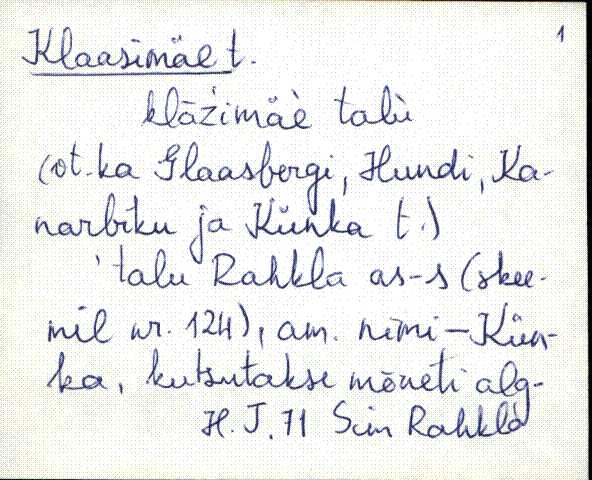 1
Klaasimäe t.
klāźimäè talù
(vt. ka Glaasbergi, Hundi, Ka-
narbiku ja Künka t.)
'talu Rahkla as-s (skee-
mil nr. 124), am. nimi – Kün-
ka, kutsutakse mõneti alg-
H. J. 71 Sim Rahkla